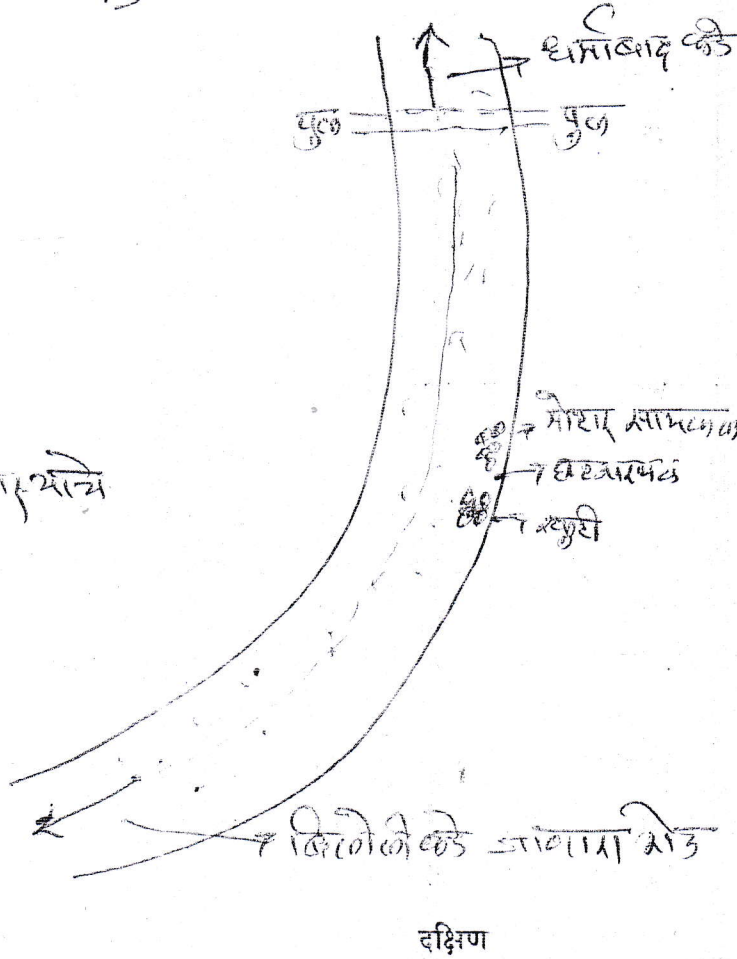 धर्माबाद कडे
पुल पुल
मोटार सायकल
घटनास्थळ
स्कुटी
बिलोली कडे जाणारा रोड
दक्षिण